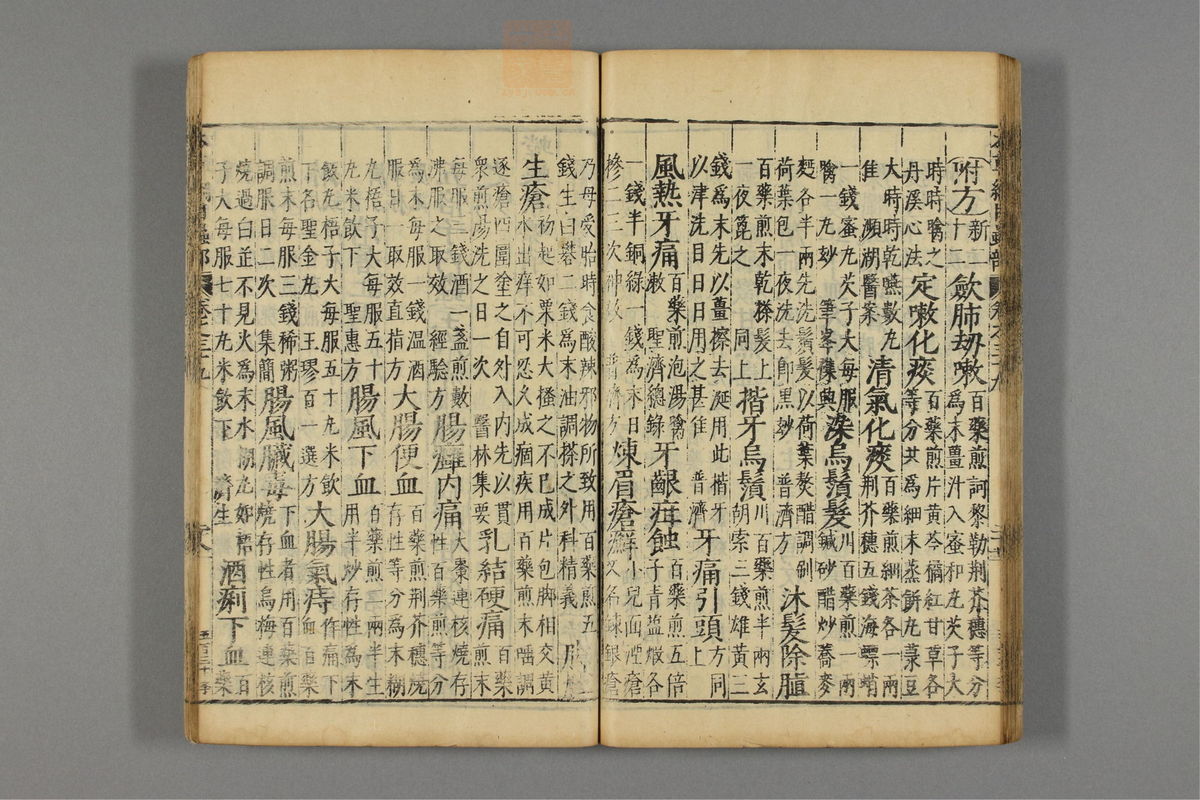 附方 新二十二 斂肺劫嗽 百藥煎訶黎勒荆芥穗等分
為末薑汁入蜜和丸芡子大
時時噙之
丹溪心法 定嗽化痰 百藥煎片黃芩橘紅甘草各
等分共為細末蒸餅丸菉豆
大時時乾嚥數丸
佳 瀕湖醫案 清氣化痰 百藥煎細茶各一兩
荆芥穗五錢海螵蛸
一錢蜜丸芡子大每服
噙一丸妙 筆峯襍興 染烏鬚髮 川百藥煎一兩
鍼砂醋炒蕎麥
麪各半兩先洗鬚髮以荷葉熬醋調刷
荷葉包一夜洗去即黑妙 普濟方 沐髮除䐈
百藥煎末乾搽髮上
一夜篦之 同上 揩牙烏鬚 川百藥煎半兩玄
胡索三錢雄黃三
錢為末先以薑擦去涎用此揩牙
以津洗目日日用之甚佳 普濟 牙痛引頭 方同
上
風熱牙痛 百藥煎泡湯噙
軟 聖濟總錄 牙齦疳蝕 百藥煎五倍
子青鹽煅各
一錢半銅綠一錢為末日
摻二三次神效 普濟方 煉眉瘡癬 小兒面湮瘡
又名煉銀瘡
乃母受胎時食酸辣邪物所致用百藥煎五
錢生白礬二錢為末油調搽之 外科精義 脚
生瘡 初起如粟米大搔之不已成片包脚相交黃
水出痒不可忍久成痼疾用百藥煎末唾調
逐瘡四圍塗之自外入內先以貫
衆煎湯洗之日一次 醫林集要 乳結硬痛 百藥
煎末
每服三錢酒一盞煎數
沸服之取效 經驗方 腸癰內痛 大棗連核燒存
性百藥煎等分
為末每服一錢溫酒
服日一取效直指方 大腸便血 百藥煎荆芥穗燒
存性等分為末糊
丸梧子大每服五十
丸米飲下 聖惠方 腸風下血 百藥煎二兩半生
用半炒存性為末
飯丸梧子大每服五十丸米飲
下名聖金丸 王璆百一選方 大腸氣痔 作痛下
血百藥
煎末每服三錢稀粥
調服日二次 集簡 腸風臟毒 下血者用百藥煎
燒存性烏梅連核
燒過白芷不見火為末水糊丸如梧
子大每服七十丸米飲下 濟生 酒痢下血 百藥